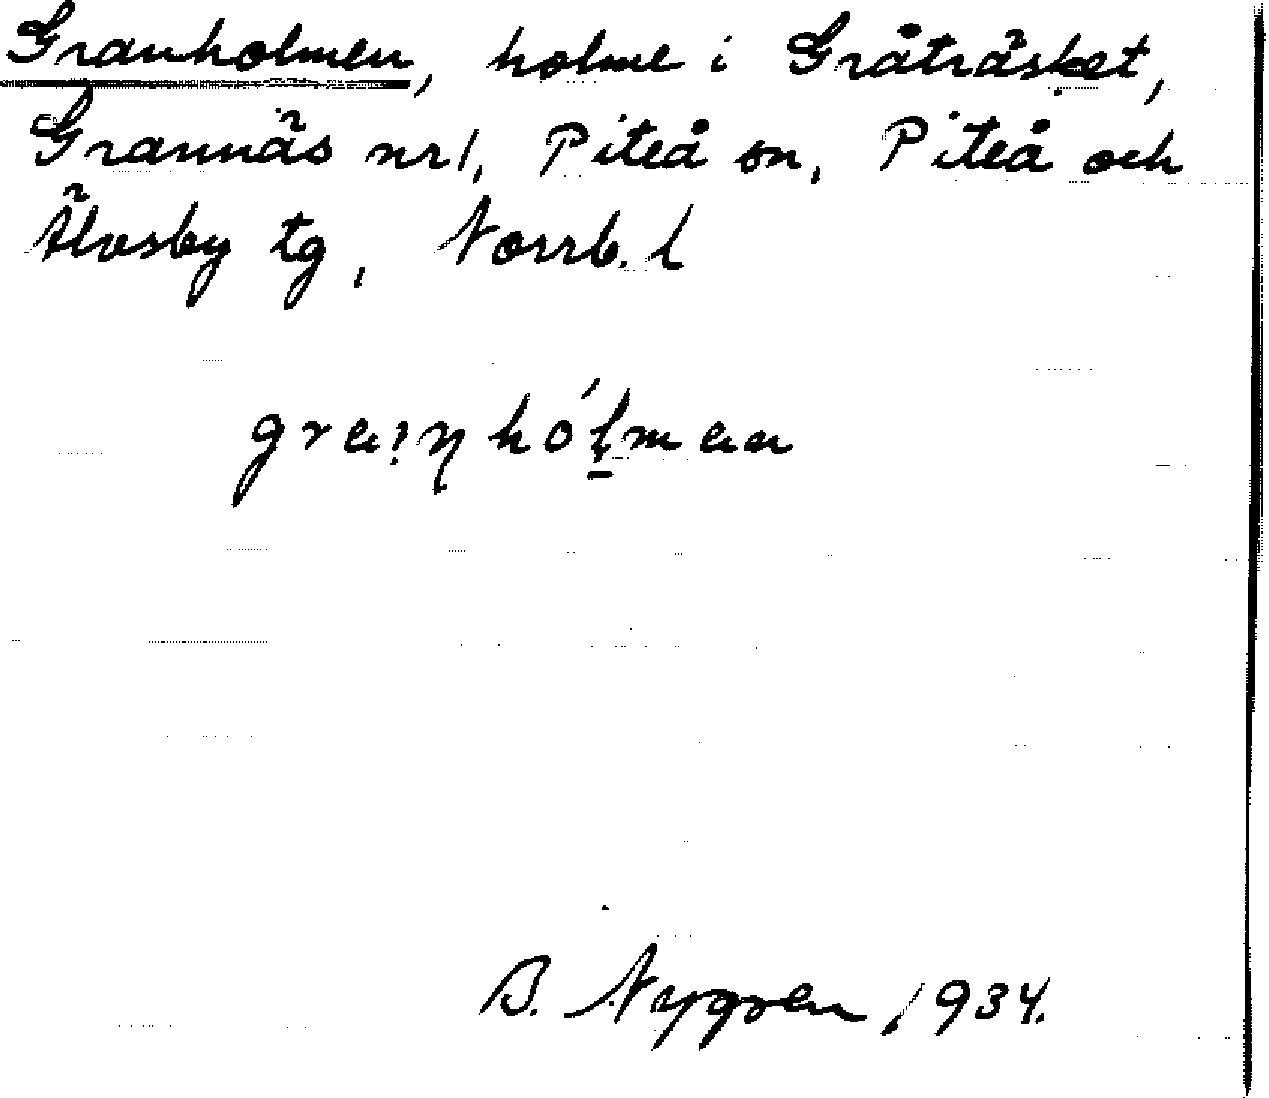 Granholmen, holme i Gråträsket,
Grannäs nr 1, Piteå sn, Piteå och
Älvsby tg, Norrb. l
B. Nygren 1934.